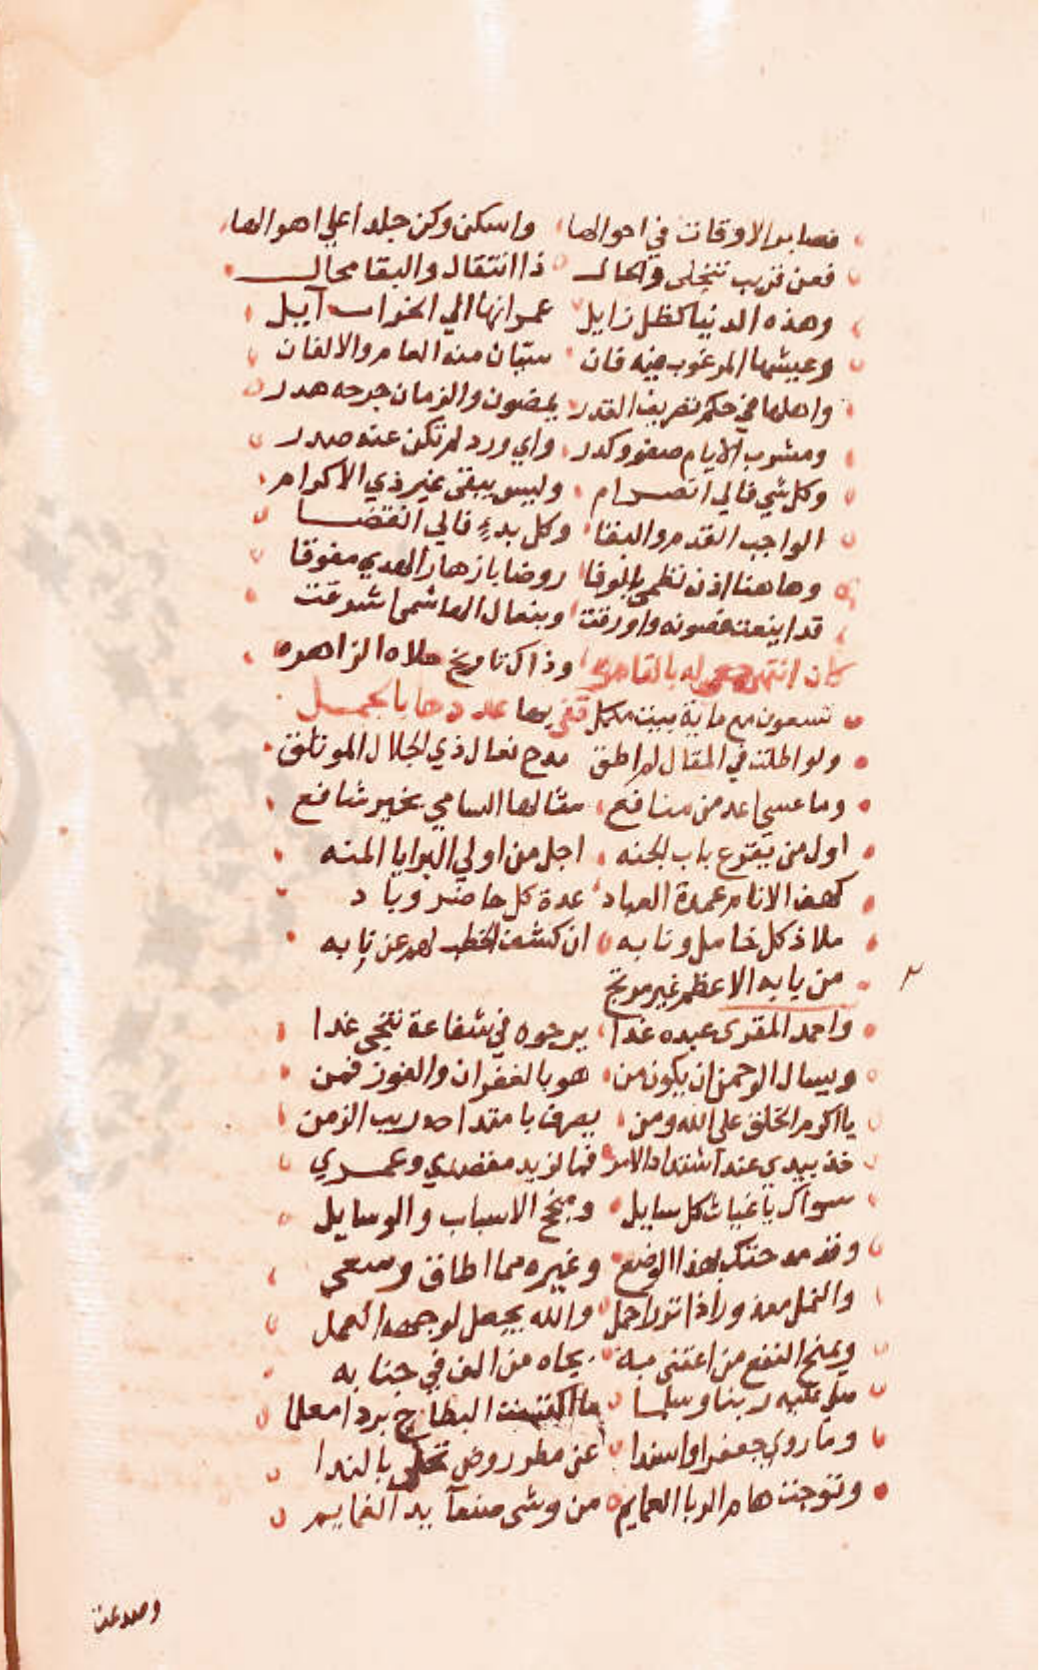 فصابر الاوقات في احوالها واسكن وكن جلدا علي اهوالها
فعن قريب تنجلي والحال ذا انتقال والبقا محال
وهذه الدنيا كظل زايل عمرانها الي الخراب آيل
وعيشها المرغوب فيه فان سيان منه العامر والالفان
واهلها في حكم تصريف القدر يمضون والزمان جرحه هدر
ومشرب الايام صفو وكدر واي ورد لم تكن عنه صدر
وكل شي فالي انصرام وليس يبقي غير ذي الاكرام
الواجب القدم والبقا وكل بدء فالي انقضا
وها هنا اذن نظمي بالوفا روضا بازهار الهدي مفوفا
قد اينعت غصونه واورقت وبنعال الهاشمي اشرقت
كان انتهى بالقاهره وذاك تاريخ حلاه الزاهره
تسعون مع ماية بيت مكمل عددها بالجمل
ولو اطلت في المقال لم اطق مدح نعال ذي الجلال المؤتلق
وما عسي اعد من منافع مثالها السامي بخير شافع
اول من يقرع باب الجنه اجل من اولي البرايا المنه
كهف الانام عمدة العباد عدة كل حاضر وباد
ملاذ كل خامل ونابه ان كشف الخطب لهم عن نابه
من بابه الاعظم غير مرتج
واحمد المقري عبده غدا يرجوه في شفاعة تنجي غدا
ويسال الرحمن ان يكون من هو بالغفران والفوز قمن
يا اكرم الخلق علي الله ومن يصرف بامتداحه ريب الزمن
خذ بيدي عند اشتداد الامر فما لزيد مقصدي وعمرو
سواك يا غياث كل سايل ومنجح الاسباب والوسايل
وقد مدحتك بهذا الوضع وغيره مما اطاق وسعي
والنمل معذور اذا تو احمل والله يجعل لوجهه العمل
ويمنح النفع من اعتني به بجاه من الف في جنابه
صلي عليه ربنا وسلما ما اكتست البطاح بردا معلما
وما روي جعفر او اسندا عن مطر روض تحلي بالندا
وتوجت هام الربا العمايم من وشي صنعا يد الغمايم